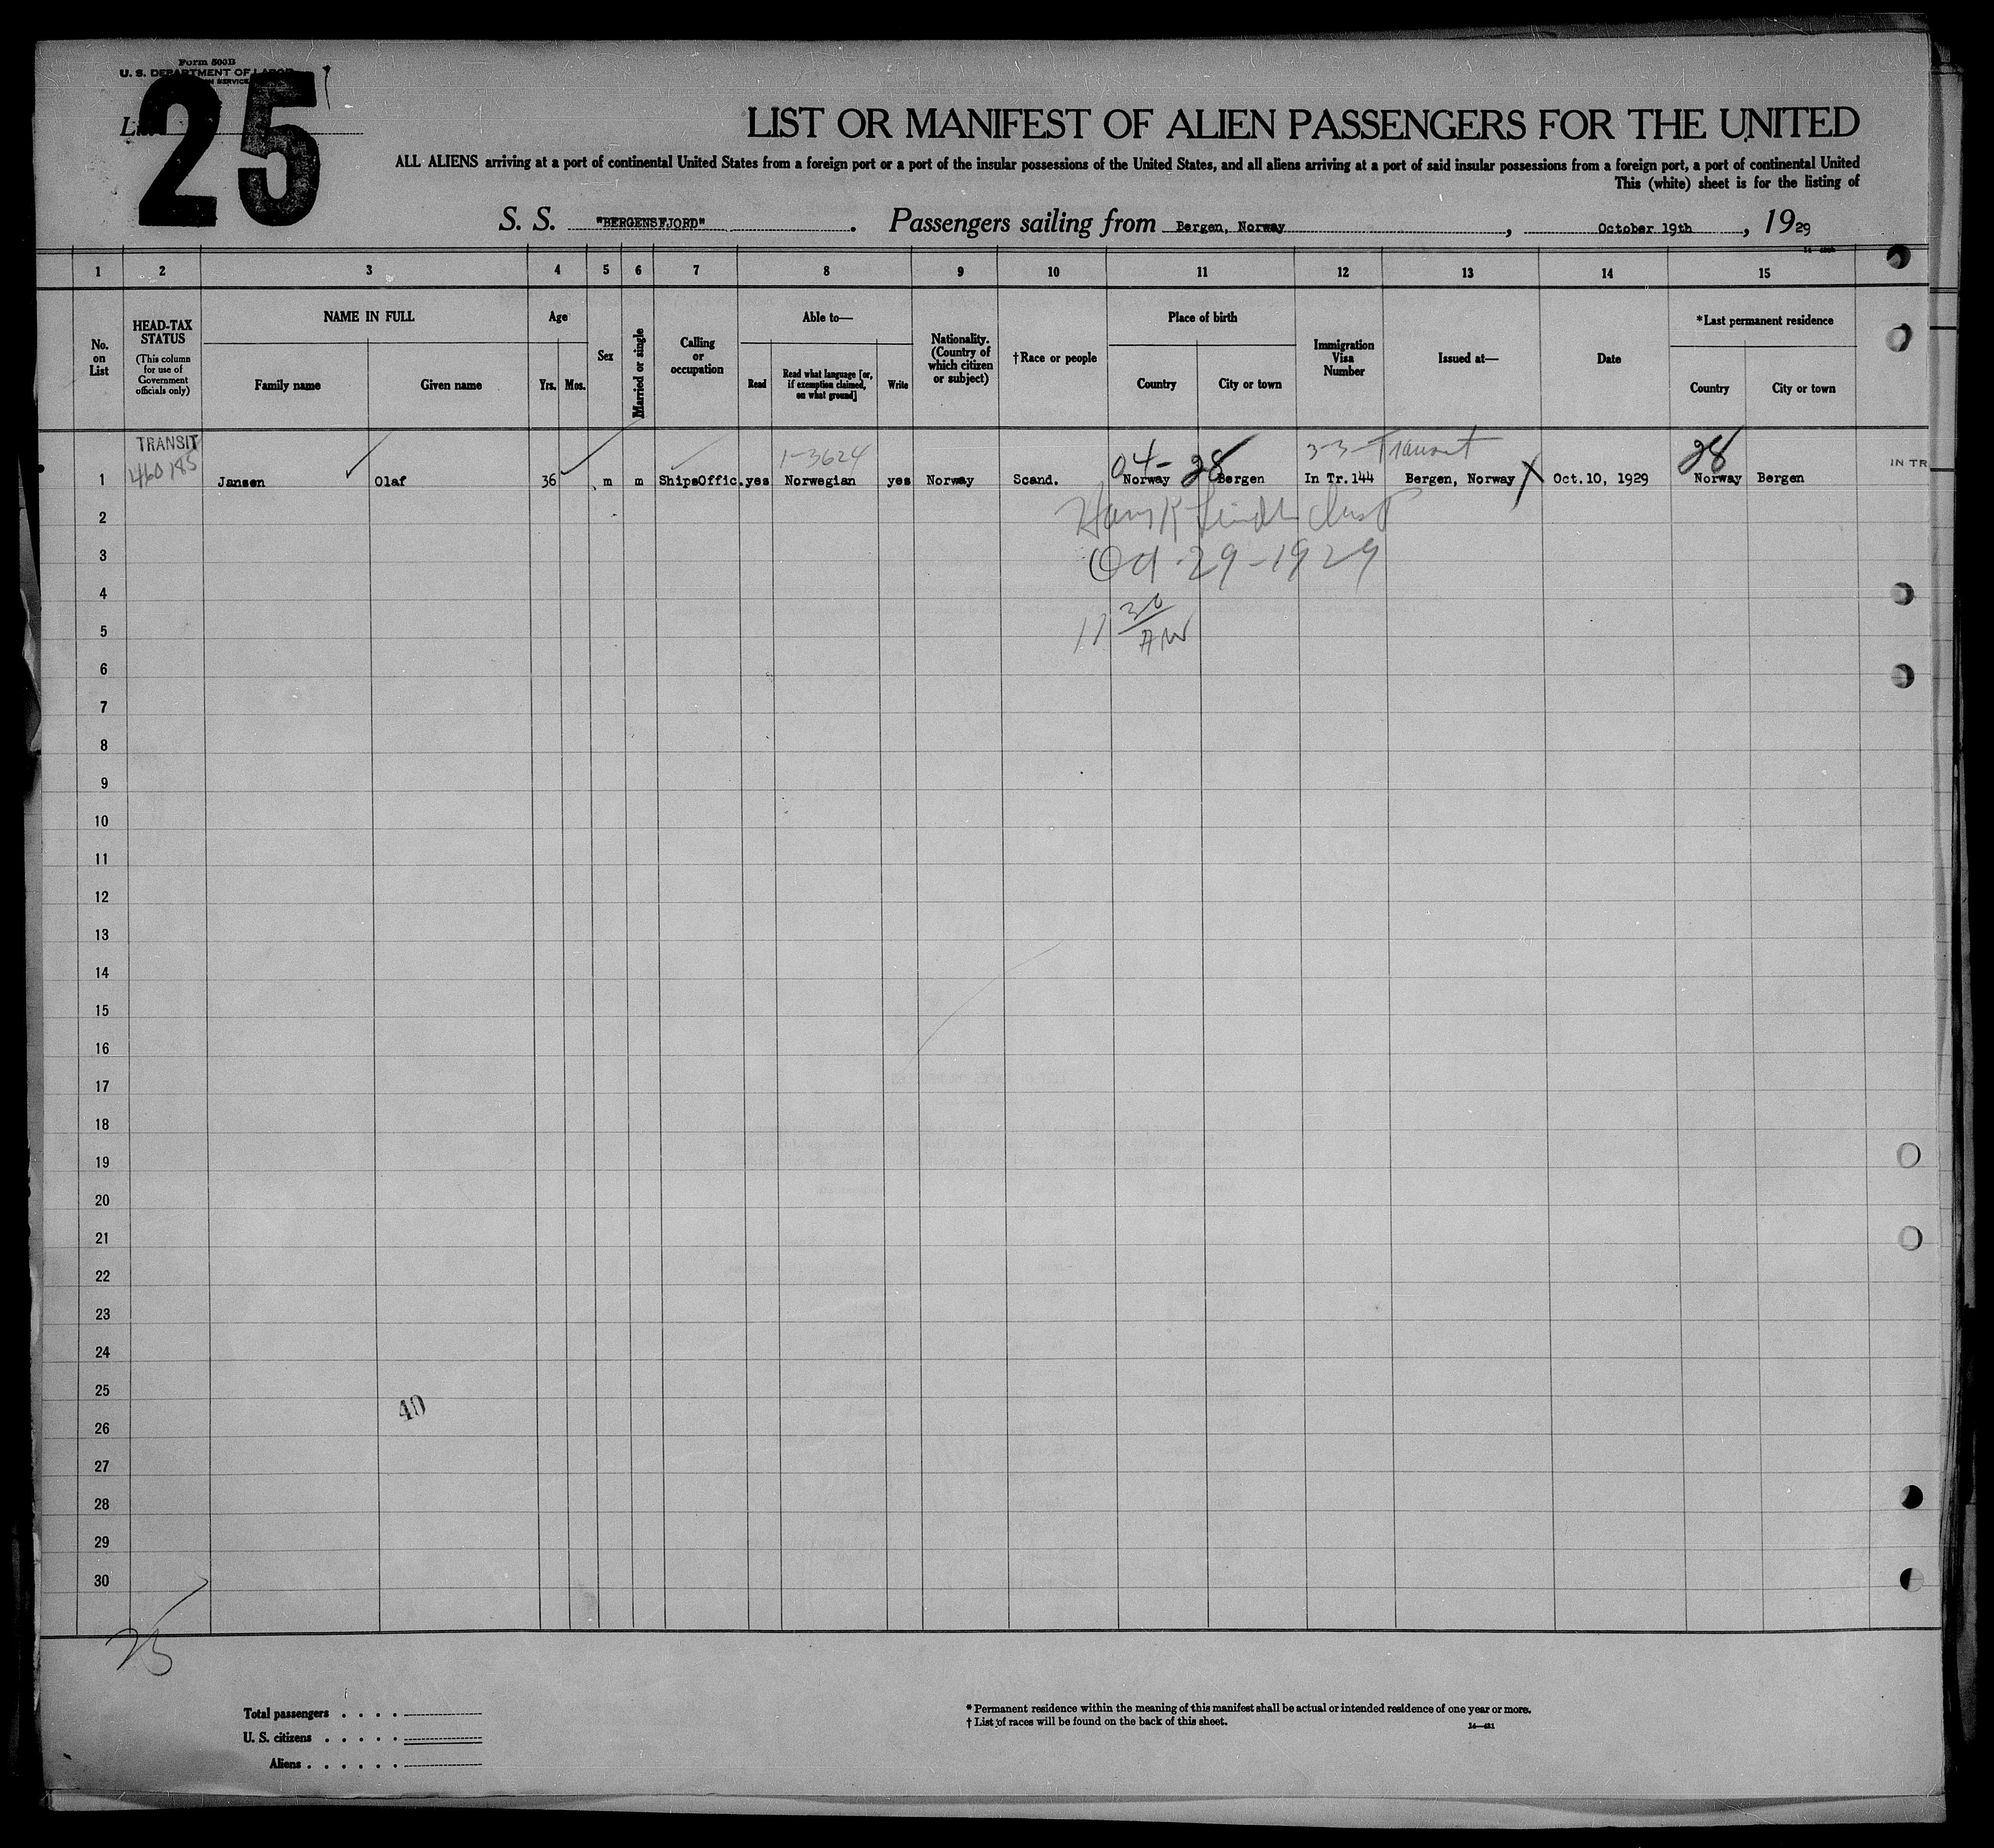 Form 500B
U. S. DEPARTMENT OF LABOR
SERVICE
25
LIST OR MANIFEST OF ALIEN PASSENGERS FOR THE UNITED
ALL ALIENS arriving at a port of continental United States from a foreign port or a port of the insular possessions of the United States, and all aliens arriving at a port of said insular possessions from a foreign port, a port of continental United
This (white) sheet is for the listing of
S. S. "BERGENSFJORD" . Passengers sailing from Bergen, Norway , October 19th , 1929
1 2 3 4 5 6 7 8 9 10 11 12 13 14 15
No. on List
HEAD-TAX STATUS
(This column for use of Government officials only)
NAME IN FULL
Family name Given name
Age
Yrs. Mos.
Sex
Married or single
Calling or occupation
Able to—
Read
Read what language [or, if exemption claimed, on what ground]
Write
Nationality. (Country of which citizen or subject)
†Race or people
Place of birth
Country City or town
Immigration Visa Number
Issued at—
Date
*Last permanent residence
Country City or town
TRANSIT 1-3624 04- 28 3-3-Transit 28
460185
1 Jansen Olaf 36 m m ShipsOffic. yes Norwegian yes Norway Scand. Norway Bergen In Tr.144 Bergen, Norway X Oct.10, 1929 Norway Bergen IN TR
2
Oct 29-1929
3
4
11 30 AM
5
6
7
8
9
10
11
12
13
14
15
16
17
18
19
20
21
22
23
24
25
40
26
27
28
29
30
Total passengers . . . .
U. S. citizens . . . . .
Aliens . . . . . .
* Permanent residence within the meaning of this manifest shall be actual or intended residence of one year or more.
† List of races will be found on the back of this sheet.